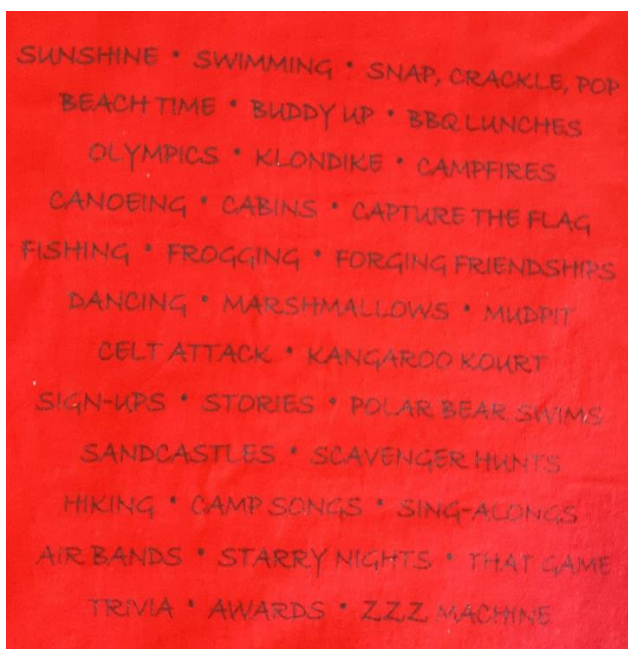 SUNSHINE • SWIMMING • SNAP, CRACKLE, POP
BEACH TIME • BUDDY UP • BBQ LUNCHES
OLYMPICS • KLONDIKE • CAMPFIRES
CANOEING • CABINS • CAPTURE THE FLAG
FISHING • FROGGING • FORGING FRIENDSHIPS
DANCING • MARSHMALLOWS • MUDPIT
CELT ATTACK • KANGAROO KOURT
SIGN-UPS • STORIES • POLAR BEAR SWIMS
SANDCASTLES • SCAVENGER HUNTS
HIKING • CAMP SONGS • SING-ALONGS
AIR BANDS • STARRY NIGHTS • THAT GAME
TRIVIA • AWARDS • ZZZ MACHINE